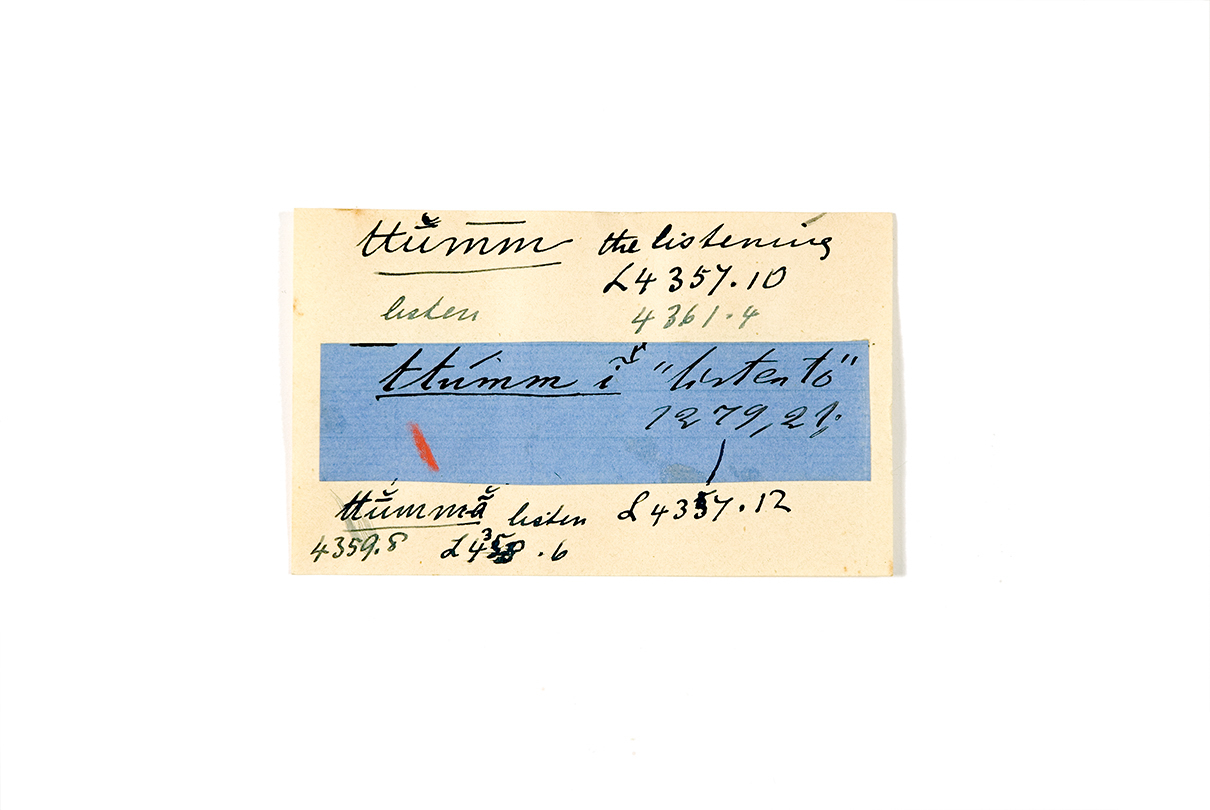 ttŭm̅m̅ the listening
L4357.10
listen 4361.4
ttúmm ĩ "listen to"
1279,21.
ttŭmmă listen L4357.12
4359.8 L4358.6